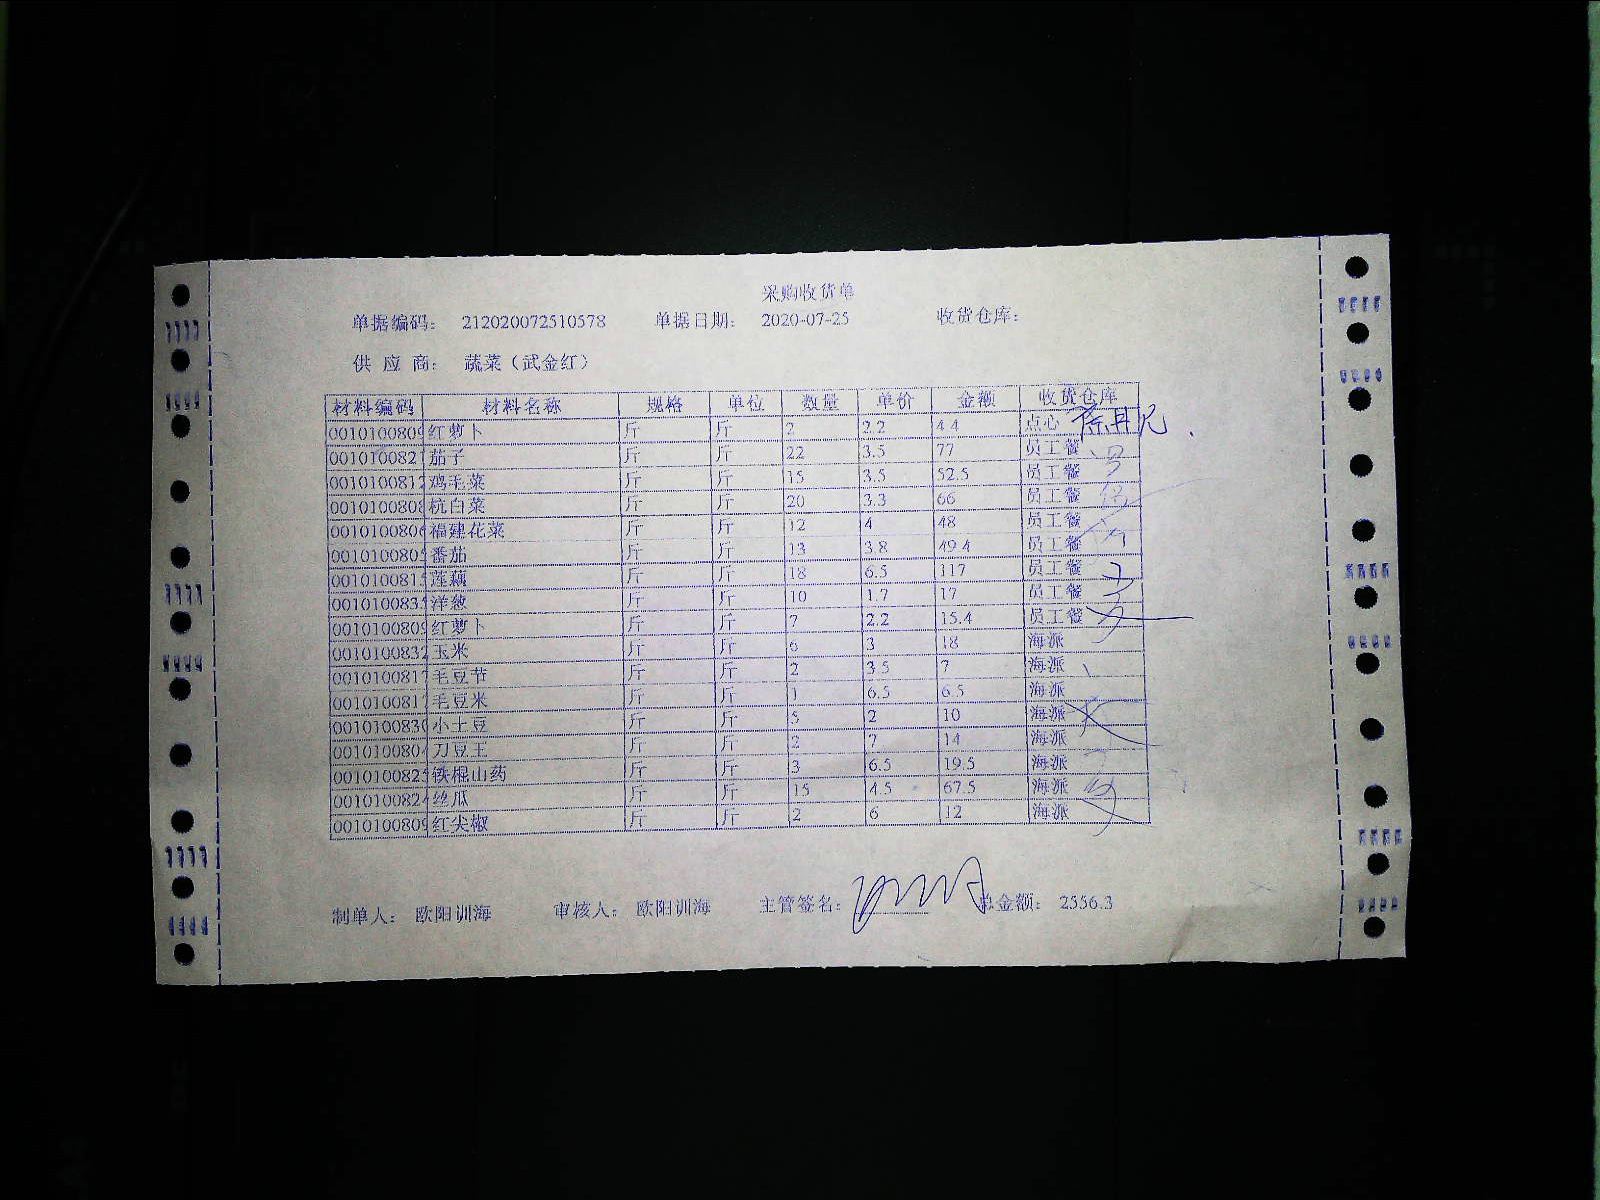 采购收货单
单据编码: 212020072510578 单据日期: 2020-07-25 收货仓库:
供 应 商: 蔬菜（武金红）
材料编码 材料名称 规格 单位 数量 单价 金额 收货仓库
0010100809 红萝卜 斤 斤 2 2.2 4.4 点心
001010082 茄子 斤 斤 22 3.5 77 员工餐
001010081 鸡毛菜 斤 斤 15 3.5 52.5 员工餐
001010080 杭白菜 斤 斤 20 3.3 66 员工餐
001010080 福建花菜 斤 斤 12 4 48 员工餐
001010080 番茄 斤 斤 13 3.8 49.4 员工餐
001010081 莲藕 斤 斤 18 6.5 117 员工餐
001010083 洋葱 斤 斤 10 1.7 17 员工餐
0010100809 红萝卜 斤 斤 7 2.2 15.4 员工餐
001010083 玉米 斤 斤 6 3 18 海派
001010081 毛豆节 斤 斤 2 3.5 7 海派
001010081 毛豆米 斤 斤 1 6.5 6.5 海派
001010083 小土豆 斤 斤 5 2 10 海派
001010080 刀豆王 斤 斤 2 7 14 海派
001010082 铁棍山药 斤 斤 3 6.5 19.5 海派
001010082 丝瓜 斤 斤 15 4.5 67.5 海派
0010100809 红尖椒 斤 斤 2 6 12 海派
制单人: 欧阳训海 审核人: 欧阳训海 主管签名: 总金额: 2556.3